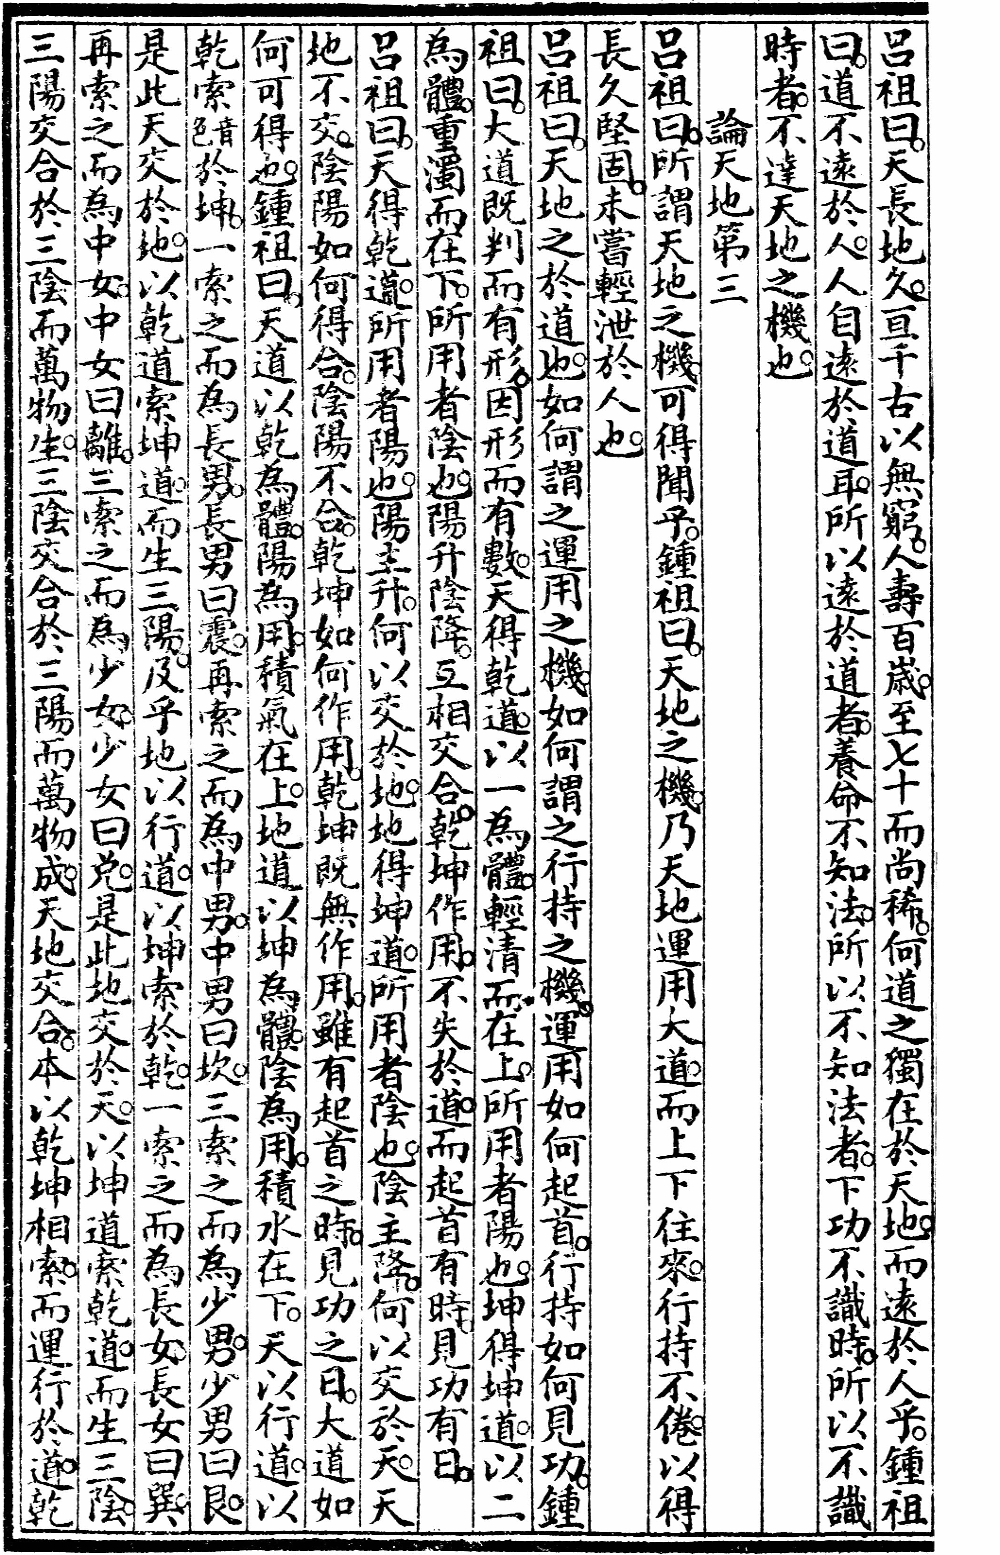 呂祖曰。天長地久。亘千古以無窮。人壽百歲。至七十而尚稀。何道之獨在於天地。而遠於人乎。鍾祖
曰。道不遠於人。人自遠於道耳。所以遠於道者。養命不知法。所以不知法者。下功不識時。所以不識
時者。不達天地之機也。
論天地第三
呂祖曰。所謂天地之機。可得聞乎。鍾祖曰。天地之機。乃天地運用大道。而上下往來。行持不倦。以得
長久堅固。未嘗輕泄於人也。
呂祖曰。天地之於道也。如何謂之運用之機。如何謂之行持之機。運用如何起首。行持如何見功。鍾
祖曰。大道既判而有形。因形而有數。天得乾道。以一為體。輕清而在上。所用者陽也。坤得坤道。以二
為體。重濁而在下。所用者陰也。陽升陰降。互相交合。乾坤作用。不失於道。而起首有時。見功有日。
呂祖曰。天得乾道。所用者陽也。陽主升。何以交於地。地得坤道。所用者陰也。陰主降。何以交於天。天
地不交。陰陽如何得合。陰陽不合。乾坤如何作用。乾坤既無作用。雖有起首之時。見功之日。大道如
何可得也。鍾祖曰。天道以乾為體。陽為用。積氣在上。地道以坤為體。陰為用。積水在下。天以行道。以
乾索音色於坤。一索之而為長男。長男曰震。再索之而為中男。中男曰坎。三索之而為少男。少男曰艮。
是此天交於地。以乾道索坤道。而生三陽。及乎地以行道。以坤索於乾。一索之而為長女。長女曰巽。
再索之而為中女。中女曰離。三索之而為少女。少女曰兌。是此地交於天。以坤道索乾道。而生三陰。
三陽交合於三陰而萬物生。三陰交合於三陽而萬物成。天地交合。本以乾坤相索。而運行於道。乾